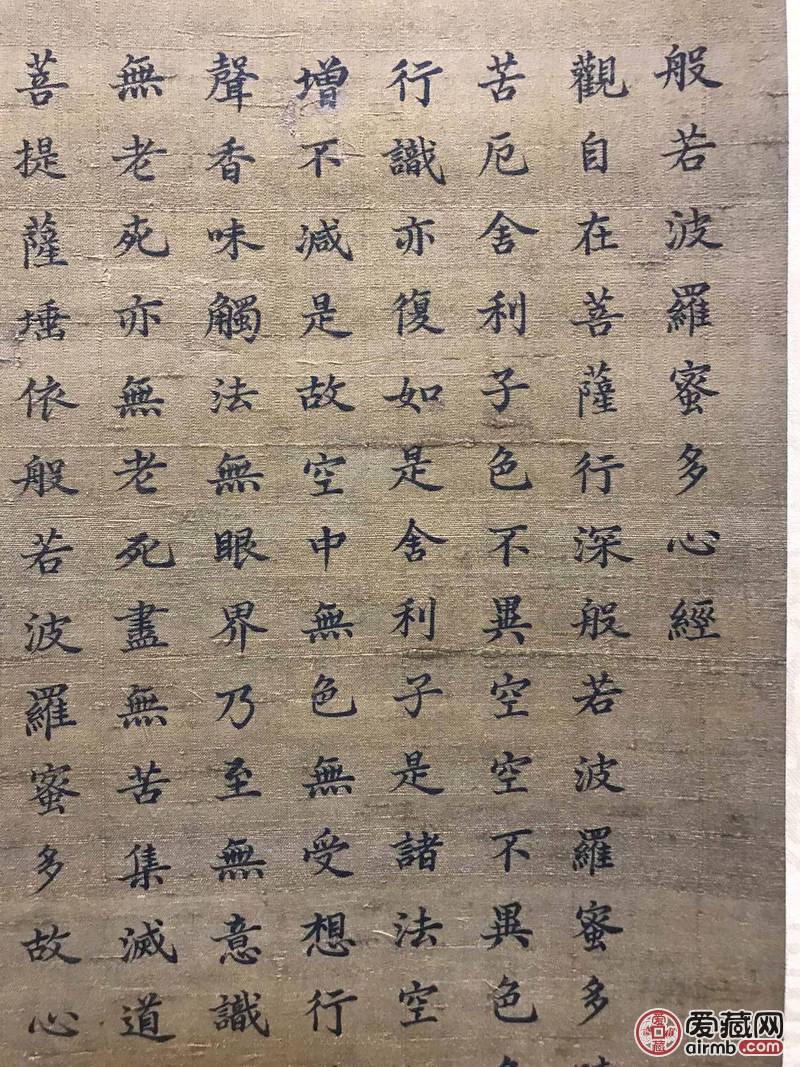 般若波羅蜜多心經
觀自在菩薩行深般若波羅蜜多
苦厄舍利子色不異空空不異色
行識亦復如是舍利子是諸法空
增不減是故空中無色無受想行
聲香味觸法無眼界乃至無意識
無老死亦無老死盡無苦集滅道
菩提薩埵依般若波羅蜜多故心
爱藏网
airmb.com